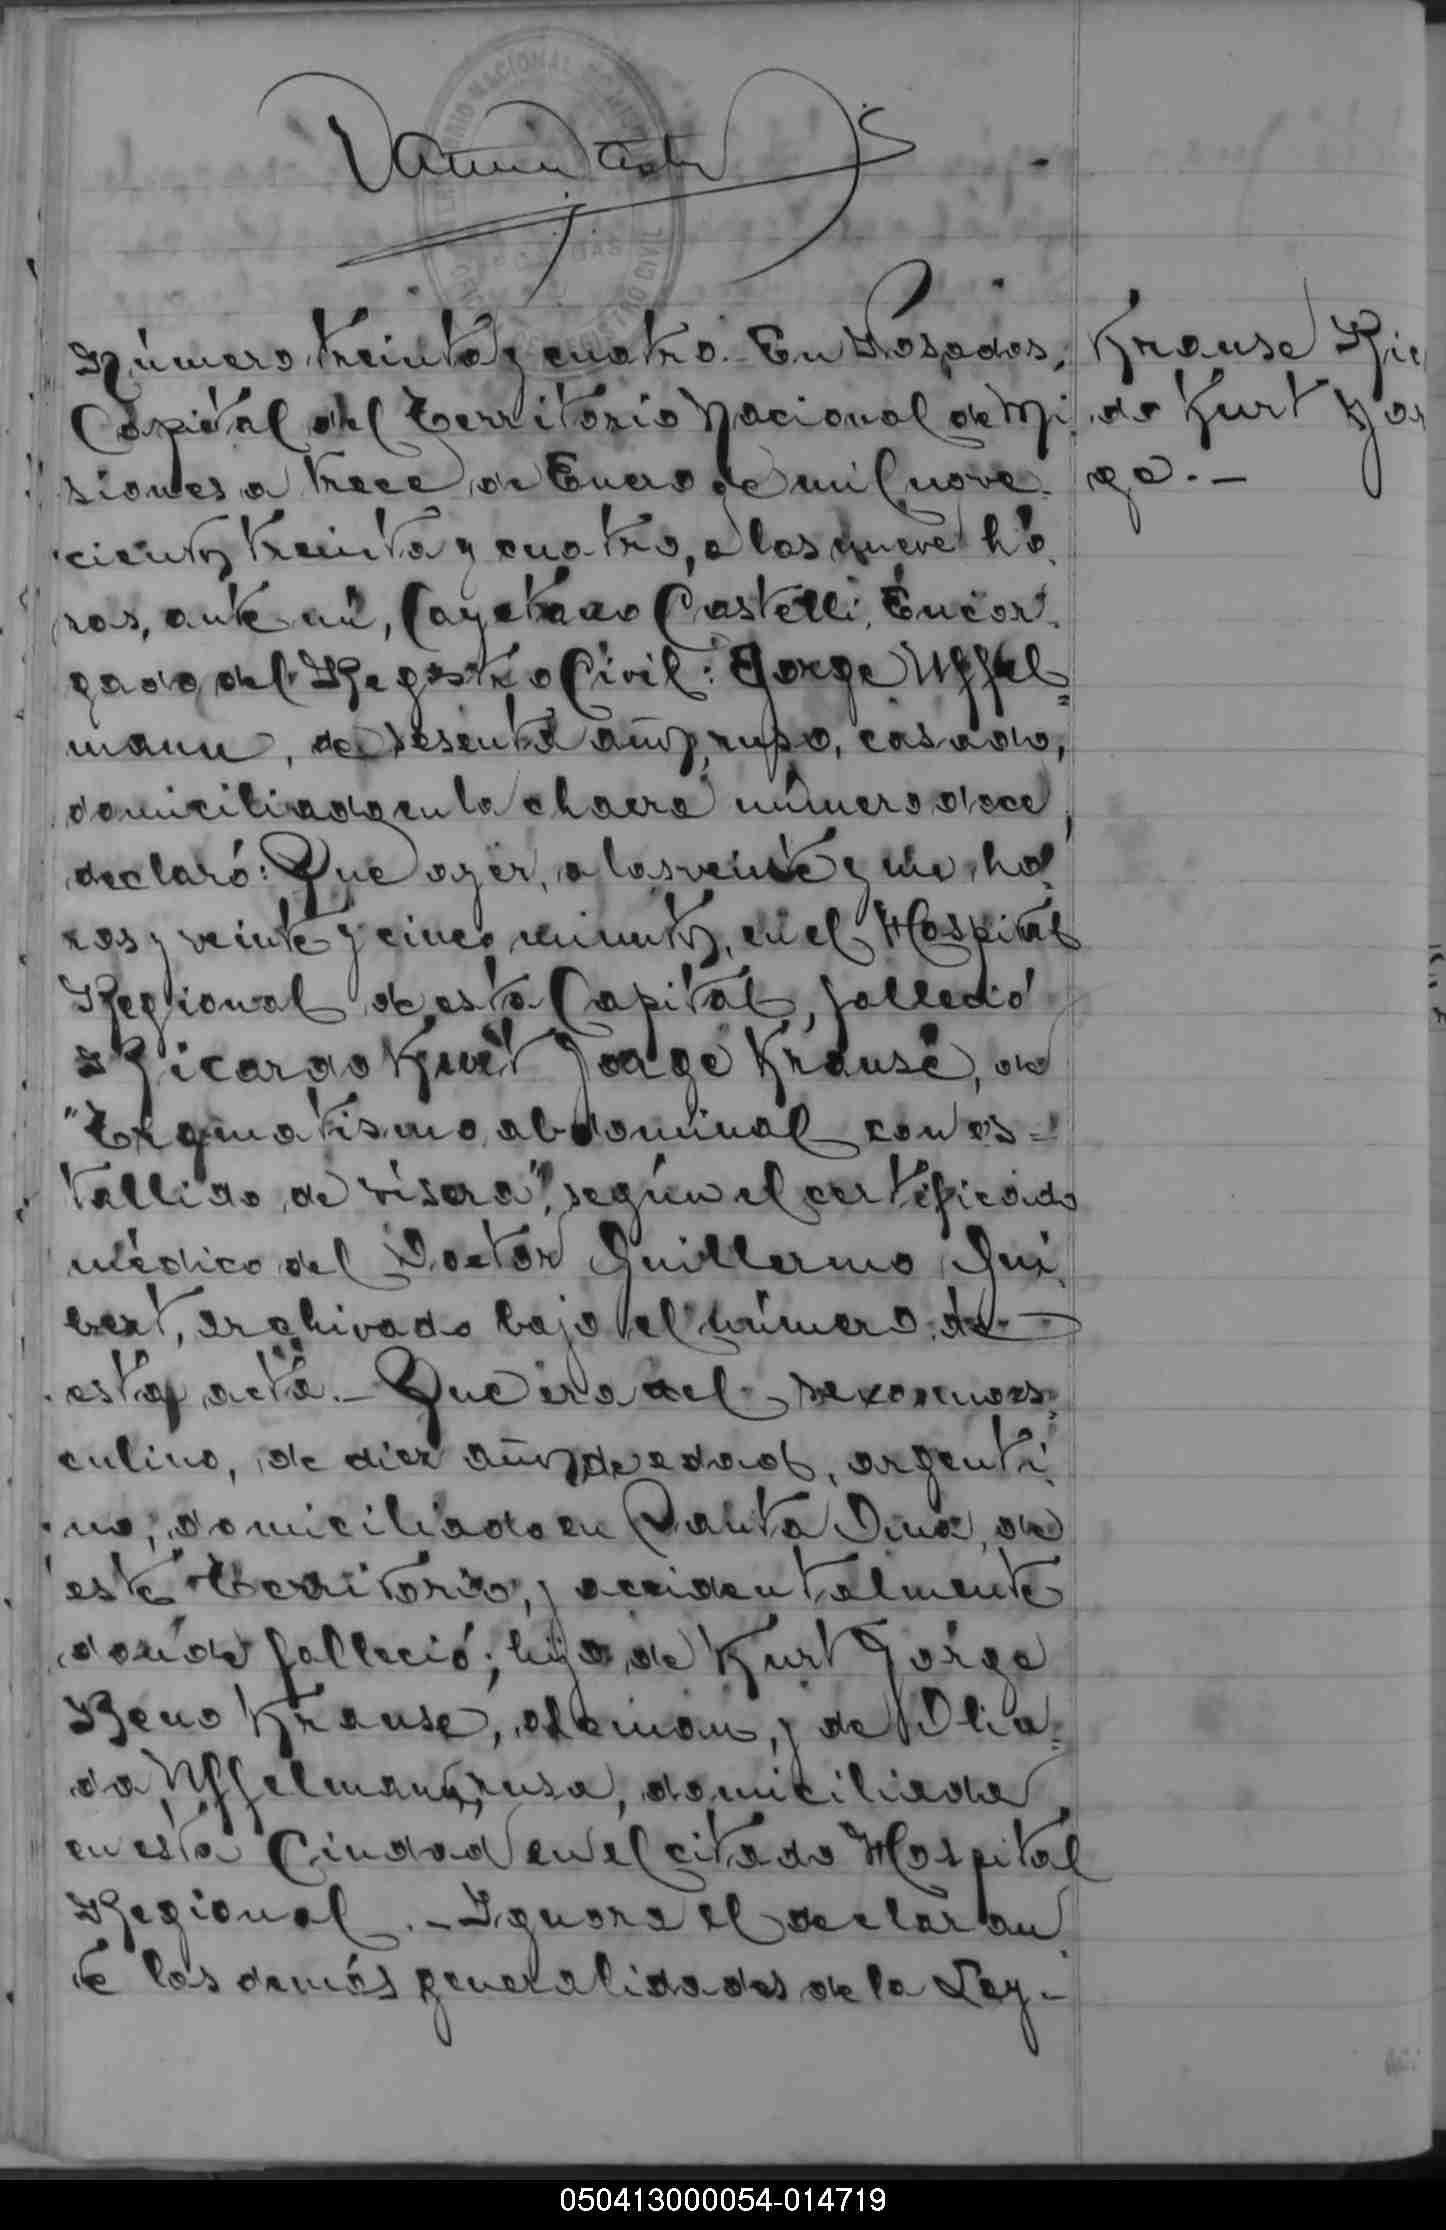 REGISTRO CIVIL
Número treinta y cuatro.- En Posadas,
Capital del Territorio Nacional de Mi
siones a trece de Enero de mil nove-
cientos treinta y cuatro, a las nueve ho
ras, ante mí, Cayetano Castelli, Encar-
gado del Registro Civil: Jorge Uffel=
mann, de sesenta años, ruso, casado,
domiciliado en la chacra número doce,
declaró: Que ayer, a las veinte y una ho
ras y veinte y cinco minutos, en el Hospital
Regional de esta Capital, falleció
Ricardo Kurt Jorge Krause, de
"Traumatismo abdominal con es=
tallido de vísera", según el certificado
médico del Doctor Guillermo Gui
bert, archivado bajo el número de
esta acta.- Que era del sexo mas=
culino, de diez años de edad, argenti
no, domiciliado en Santa Ana, de
este Territorio, y accidentalmente
donde falleció; hijo de Kurt Jorge
Beno Krause, aleman, y de Olia=
da Uffelmann, rusa, domiciliada
en esta Ciudad en el citado Hospital
Regional.- Ignora el declaran
te las demás generalidades de la Ley.-
Krause Ric
do Kurt Jor
ge.-
050413000054-014719